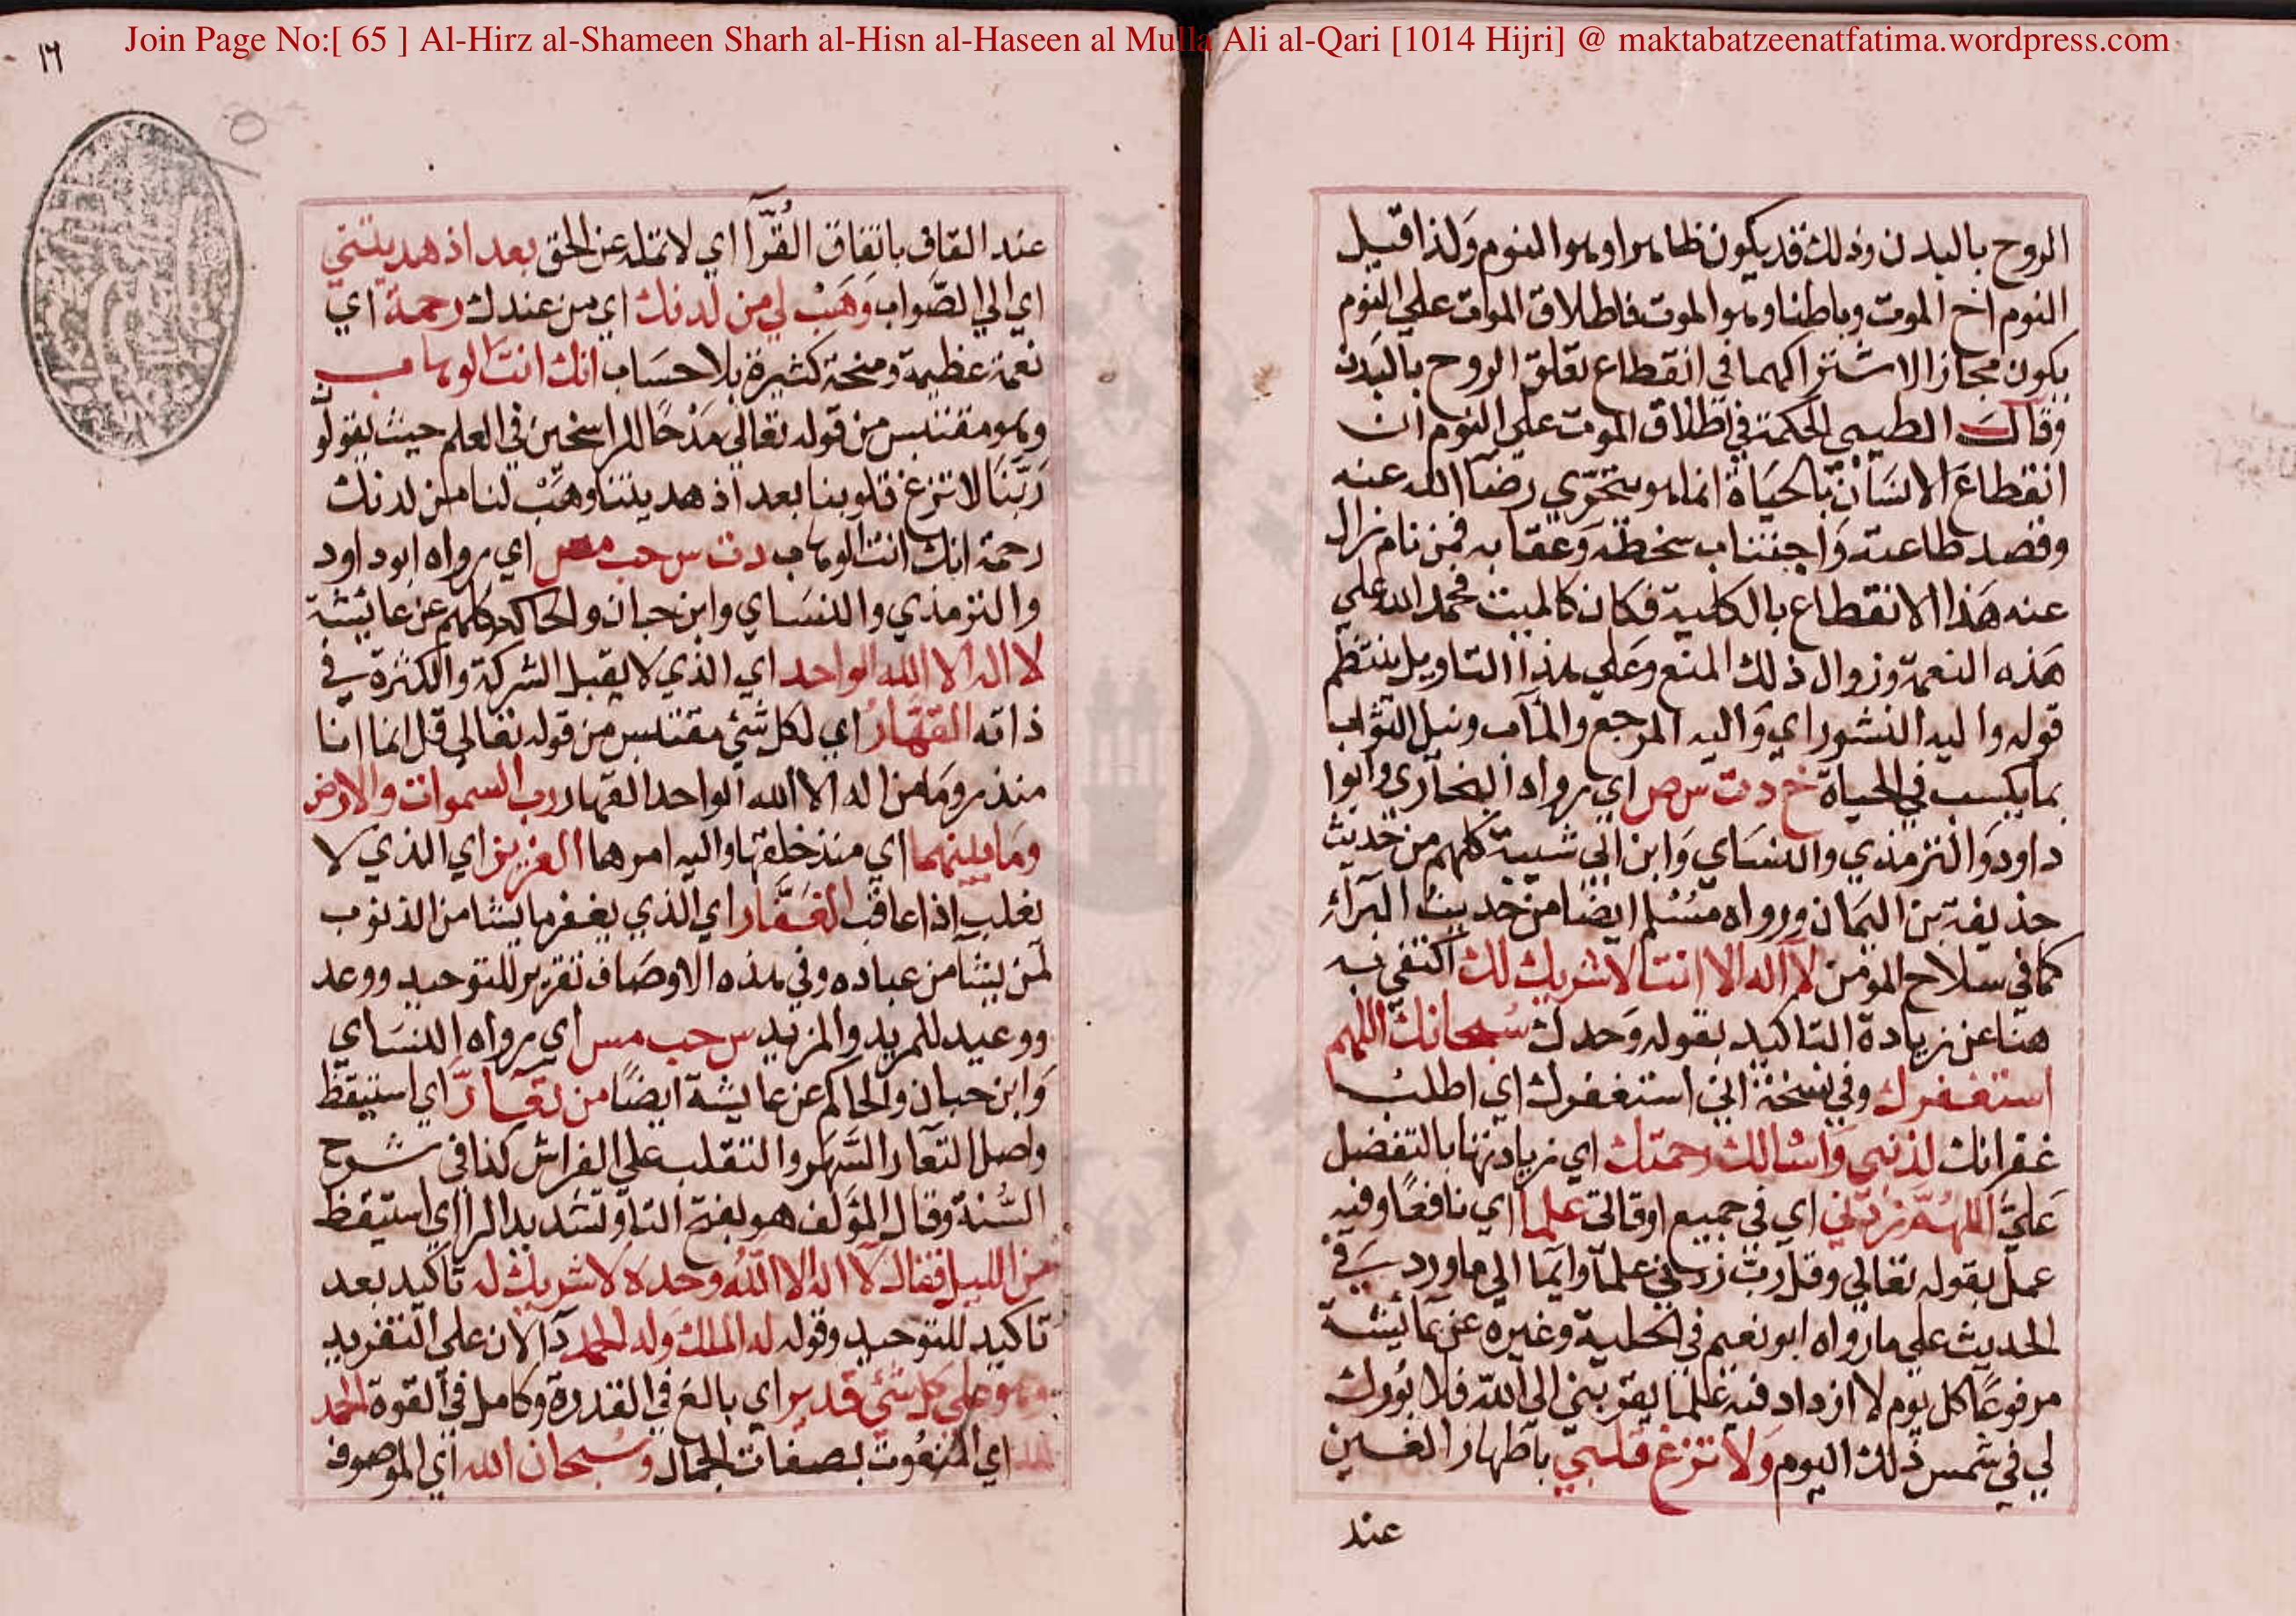 Join Page No:[ 65 ] Al-Hirz al-Shameen Sharh al-Hisn al-Haseen al Mulla Ali al-Qari [1014 Hijri] @ maktabatzeenatfatima.wordpress.com
١٦
الروح بالبدن وذلك قد يكون ظاهرا وهو النوم ولذا قيل
النوم اخ الموت وباطنا وهو الموت فاطلاق الموت علي النوم
يكون مجازا لاشتراكهما في انقطاع تعلق الروح بالبدن
وقال الطيبي الحكمة في اطلاق الموت علي النوم ان
انقطاع الانسان بالحياة انما هو بتحري رضا الله عنه
وقصد طاعته واجتناب سخطه وعقابه فمن نام زال
عنه هذا الانقطاع بالكلية فكان كالميت فحمد الله علي
هذه النعمة وزوال ذلك المنع وعلي هذا التاويل ينتظم
قوله واليه النشور اي واليه المرجع والمآب ونيل الثواب
بما يكسب في الحياة خ د ت س مص اي رواه البخاري وابوا
داود والترمذي والنسَاي وابن ابي شيبة كلهم من حديث
حذيفة بن اليمان ورواه مسلم ايضا من حديث البرآء
كما في سلاح المؤمن لا اله الا انت لا شريك لك اكتفي به
هنا عن زيادة التاكيد بقوله وحدك سبحانك اللهم
استغفرك وفي نسخة اني استغفرك اي اطلب
غفرانك لذنبي واسالك رحمتك اي زيادتها بالتفضل
عليَّ اللهم زدني اي في جميع اوقاتي علما اي نافعا وفيه
عمل بقوله تعالي وقل رب زدني علما وايما الي ما ورد في
الحديث علي ما رواه ابو نعيم في الحلية وغيره عن عائيشة
مرفوعا كل يوم لا ازداد فيه علما يقربني الي الله فلا بورك
لي في شمس ذلك اليوم ولا تزغ قلبي باظهار الغين
عند
عند القاف باتفاق القرآ اي لا تمله عن الحق بعد اذ هديتني
اي الي الصواب وهب لي من لدنك اي من عندك رحمة اي
نعمة عظيمة ومنحة كثيرة بلا حساب انك انت الوهاب
وهو مقتبس من قوله تعالي مدحا للراسخين في العلم حيث يقولون
ربنا لا تزغ قلوبنا بعد اذ هديتنا وهب لنا من لدنك
رحمة انك انت الوهاب د ت س حب مس اي رواه ابو داود
والترمذي والنسَاي وابن حبان والحاكم كلهم عن عائيشة
لا اله الا الله الواحد اي الذي لا يقبل الشركة والكثرة في
ذاته القهار اي لكل شئ مقتبس من قوله تعالي قل انما انا
منذر وما من اله الا الله الواحد القهار رب السموات والارض
وما بينهما اي منذ خلقها واليه امرهما العزيز اي الذي لا
يغلب اذا عاقب الغفار اي الذي يغفر ما يشا من الذنوب
لمن يشآ من عباده وفي هذه الاوصاف تقرير للتوحيد ووعد
ووعيد للمريد والمزيد س حب مس اي رواه النسَاي
وابن حبان والحاكم عن عايشة ايضًا من تعارّ اي استيقظ
واصل التعار السهر والتقلب علي الفراش كذا في شرح
السُّنة وقال المؤلف هو بفتح التا وتشديد الرا اي استيقظ
من الليل فقال لا اله الا الله وحده لا شريك له تاكيد بعد
تاكيد للتوحيد وقوله له الملك وله الحمد دآلان علي التفريد
وهو علي كل شئ قدير اي بالغ في القدرة وكامل في القوة الحمد
لله اي المنعوت بصفات الجمال وسبحان الله اي الموصوف